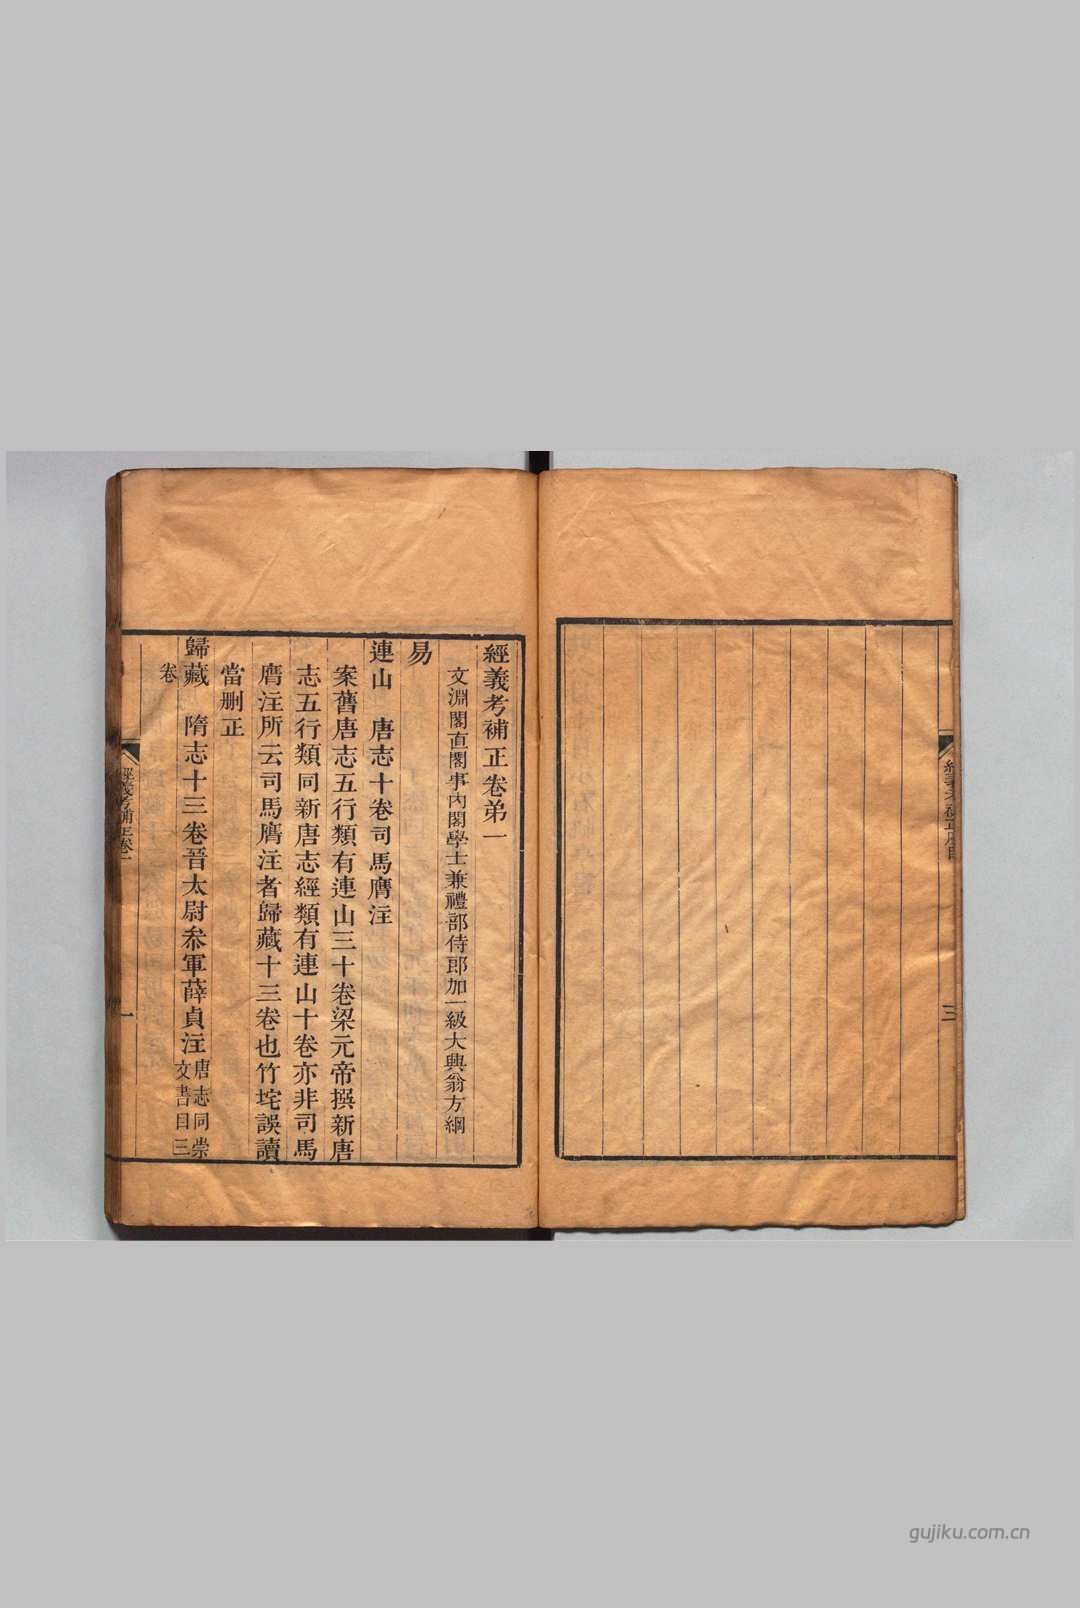 經義考補正序目
三
經義考補正卷弟一
文淵閣直閣事內閣學士兼禮部侍郎加一級大興翁方綱
易
連山　唐志十卷司馬膺注
案舊唐志五行類有連山三十卷梁元帝撰新唐
志五行類同新唐志經類有連山十卷亦非司馬
膺注所云司馬膺注者歸藏十三卷也竹垞誤讀
當刪正
歸藏　隋志十三卷晉太尉叅軍薛貞注唐志同崇
文書目三
卷
經義考補正卷一
一
gujiku.com.cn